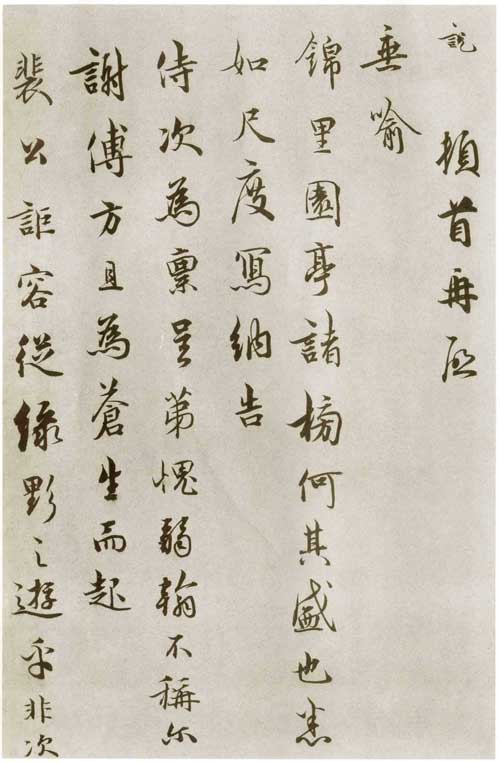 說頓首再啟
垂喻
錦里園亭諸榜何其盛也悉
如尺度寫納告
侍次為稟呈第愧弱翰不稱尔
謝傅方且為蒼生而起
裴公詎容從綠野之遊乎非次